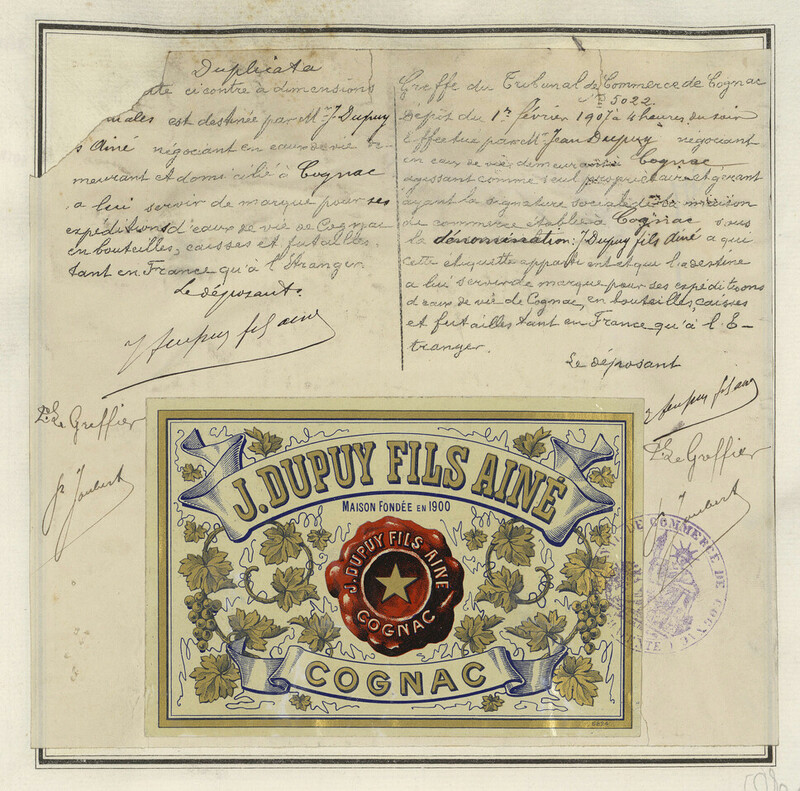 Duplicata
ci contre à dimensions
est destinée par Mr J. Dupuy
s Ainé négociant en eaux de vie de-
meurant et domicilié à Cognac
a lui servir de marque pour ses
expéditions d'eaux de vie de Cognac
en bouteilles, caisses et futailles
tant en France qu'à l'Etranger.
Le déposant.
J Dupuy fils ainé
Le Greffier
Joubert
Greffe du Tribunal de Commerce de Cognac
No 5022
Dépôt du 1er février 1907 à 4 heures du soir
Effectué par Mr Jean Dupuy négociant
en eaux de vie demeurant à Cognac
agissant comme seul propriétaire et gérant
ayant la signature sociale de la maison
de commerce établie à Cognac sous
la dénomination: J Dupuy fils Ainé a qui
cette étiquette appartient et qui la destine
a lui servir de marque pour ses expéditions
d'eaux de vie de Cognac, en bouteilles, caisses
et futailles tant en France qu'à l'E-
tranger.
Le déposant
J Dupuy fils ainé
Le Greffier
Joubert
J. DUPUY FILS AINÉ
MAISON FONDÉE EN 1900
J. DUPUY FILS AINÉ
COGNAC
COGNAC
DE COMMERCE DE